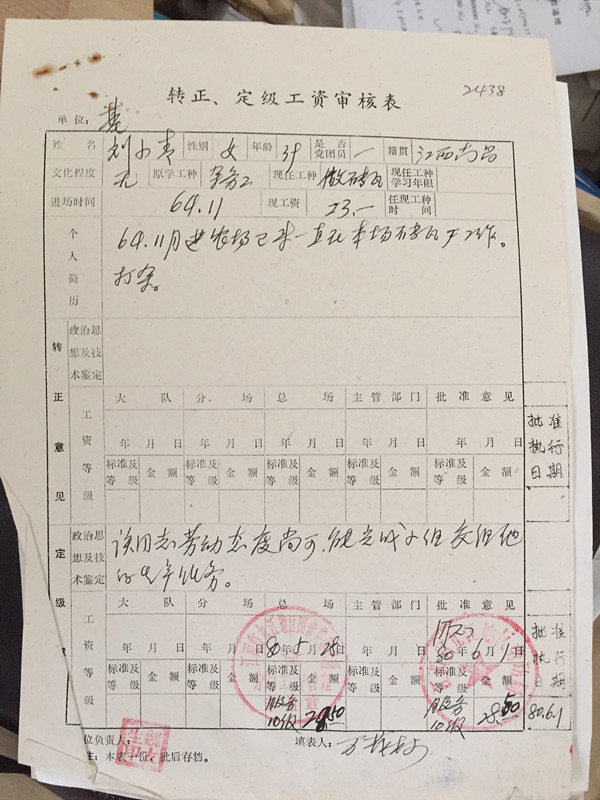 2438
转正、定级工资审核表
单位：
姓名 刘小青 性别 女 年龄 31 是否党团员 一 籍贯 江西南昌
文化程度 无 原学工种 现任工种 做砖瓦 现任工种学习年限
进场时间 64.11 现工资 23.— 任现工种时间
个人简历
64.11月进农场已来一直在本场砖瓦厂工作。
打杂。
转正意见
政治思想及技术鉴定
工资等级
大队 分场 总场 主管部门 批准意见
年月日 年月日 年月日 年月日 年月日
标准及等级 金额 标准及等级 金额 标准及等级 金额 标准及等级 金额 标准及等级 金额
批准执行日期
定级意见
政治思想及技术鉴定
该同志劳动态度尚可，能完成小组交给他
的生产业务。
工资等级
大队 分场 总场 主管部门 批准意见
年月日 年月日 80年5月28日 年月日 80年6月1日
标准及等级 金额 标准及等级 金额 标准及等级 金额 标准及等级 金额 标准及等级 金额
服务10级 28.50 服务10级 28.50
批准执行日期
80.6.1
位负责人： 填表人：
注：本表一份，批后存档。